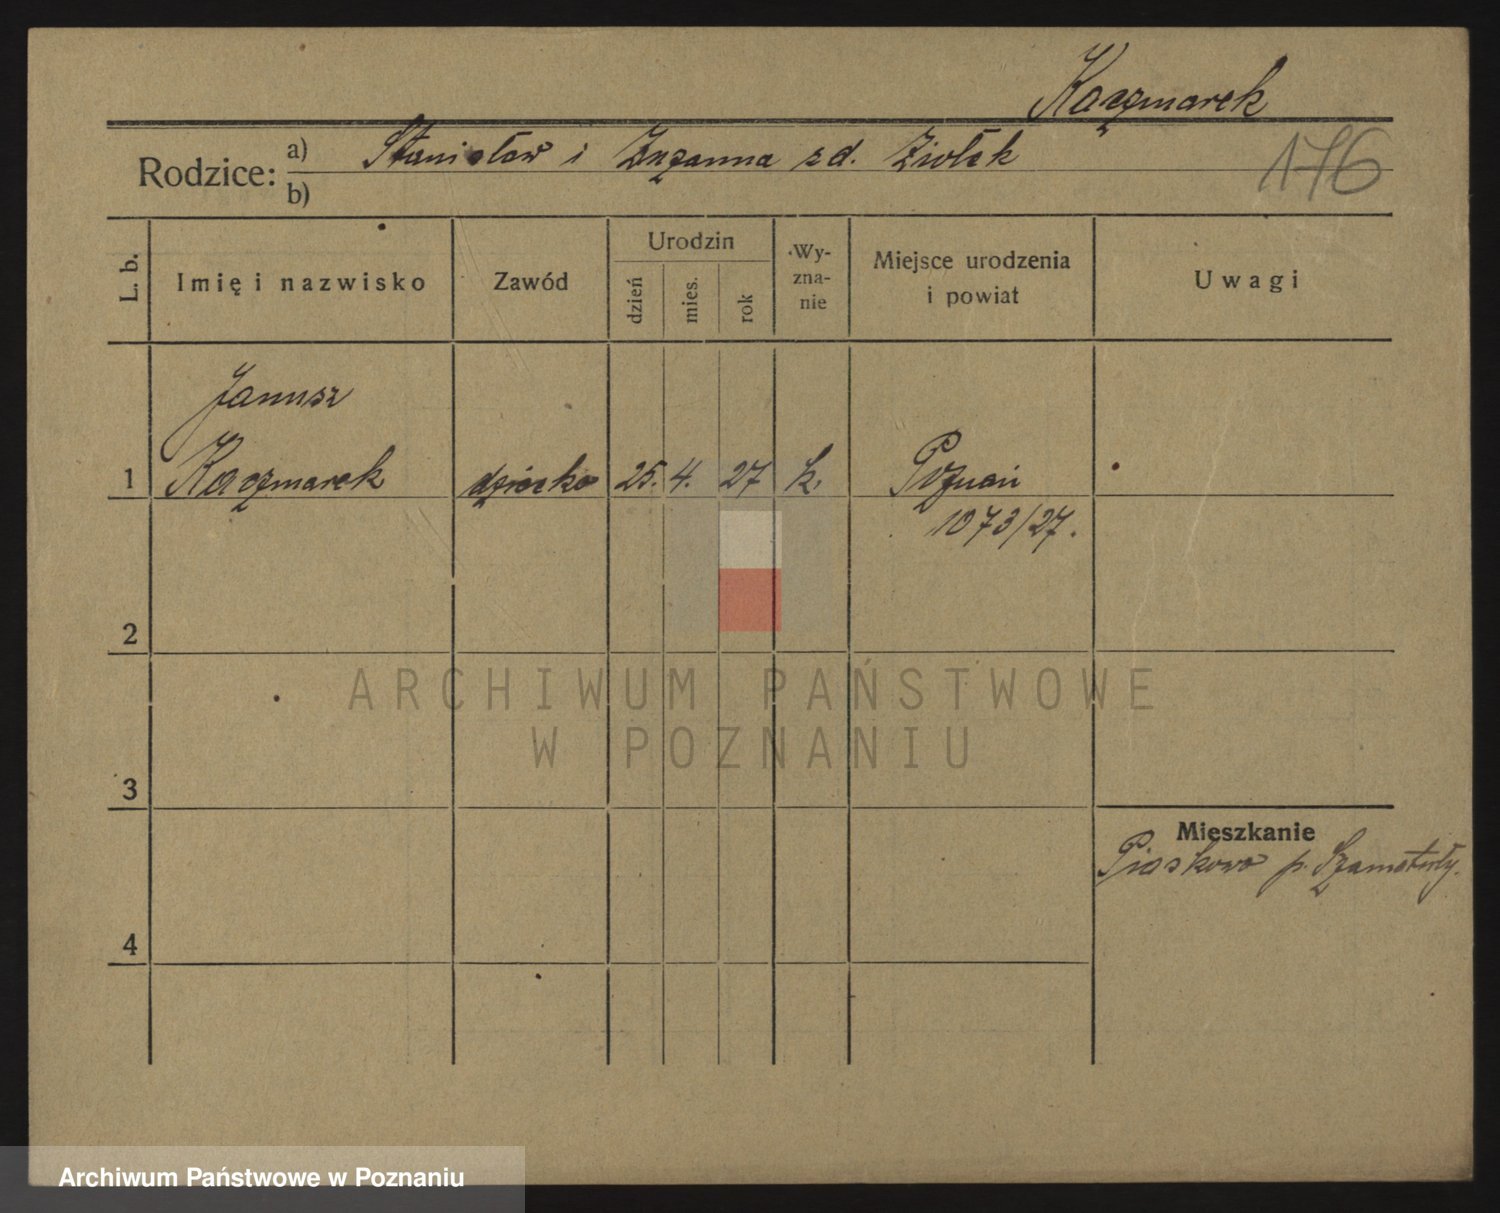 Kaczmarek
176
Rodzice: a) Stanisław i Zuzanna zd. Ziołek
b)
L. b. Imię i nazwisko Zawód Urodzin dzień mies. rok Wy-zna-nie Miejsce urodzenia i powiat Uwagi
Janusz
1 Kaczmarek dziecko 25. 4. 27 k. Poznań
1073/27.
2
ARCHIWUM PAŃSTWOWE
W POZNANIU
3
Mieszkanie
Piaskowo p. Szamotuły.
4
Archiwum Państwowe w Poznaniu